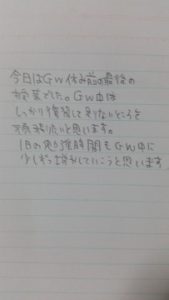 今日はGW休み前の最後の
授業でした。GW中は
しっかり復習して足りないところを
思います。
1日の勉強時間もGW中に
少しずつ増やしていこうと思います